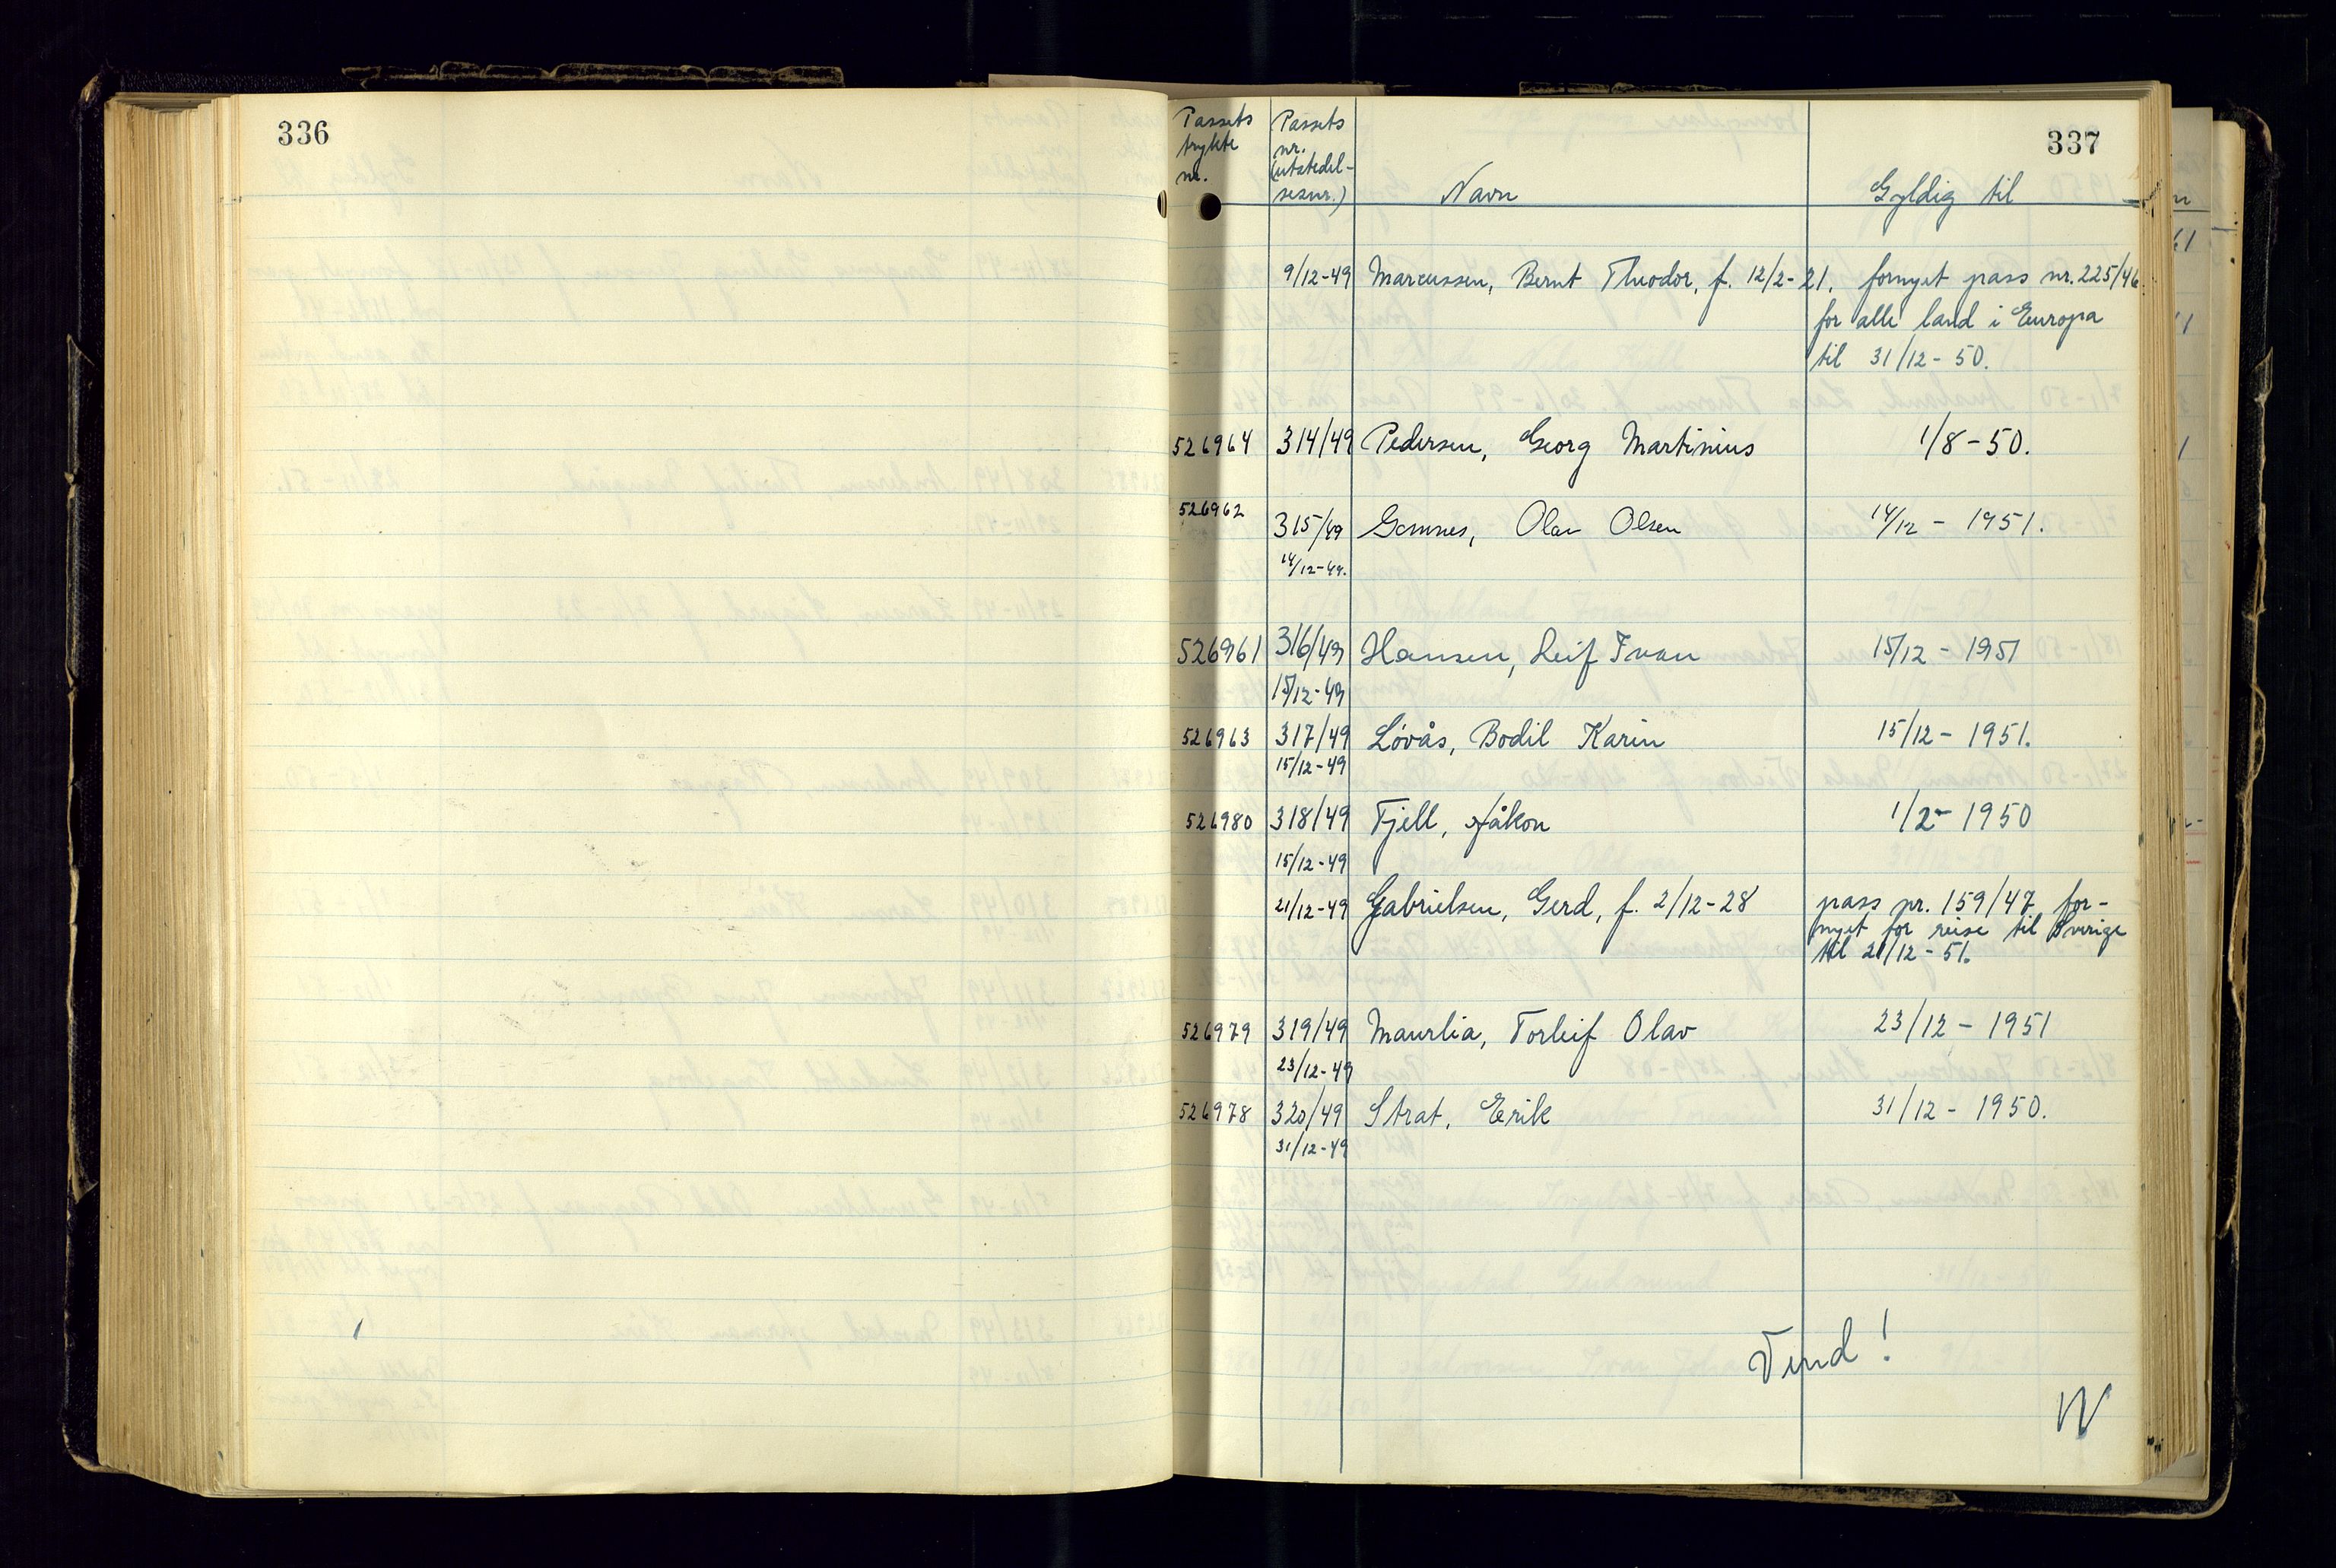 336
337
Passets trykte nr.
Passets nr. (utstedel-sesnr.)
Navn
Gyldig til
9/12-49 Marcussen, Bernt Theodor, f. 12/2-21. fornyet pass nr. 225/46
for alle land i Europa
til 31/12-50.
526964 314/49 Pedersen, Georg Martinius 1/8-50.
526962 315/49 Gomnes, Olav Olsen 14/12 - 1951.
14/12-49.
526961 316/49 Hansen, Leif Ivan 15/12 - 1951
15/12-49
526963 317/49 Løvås, Bodil Karin 15/12 - 1951.
15/12-49
526980 318/49 Tjell, Håkon 1/2 - 1950
15/12-49
21/12-49 Gabrielsen, Gerd, f. 2/12-28 pass nr. 159/47 for-
nyet for reise til Sverige
til 21/12-51.
526979 319/49 Maurlia, Torleif Olav 23/12 - 1951
23/12-49
526978 320/49 Strat, Erik 31/12 - 1950.
31/12-49
Vend!